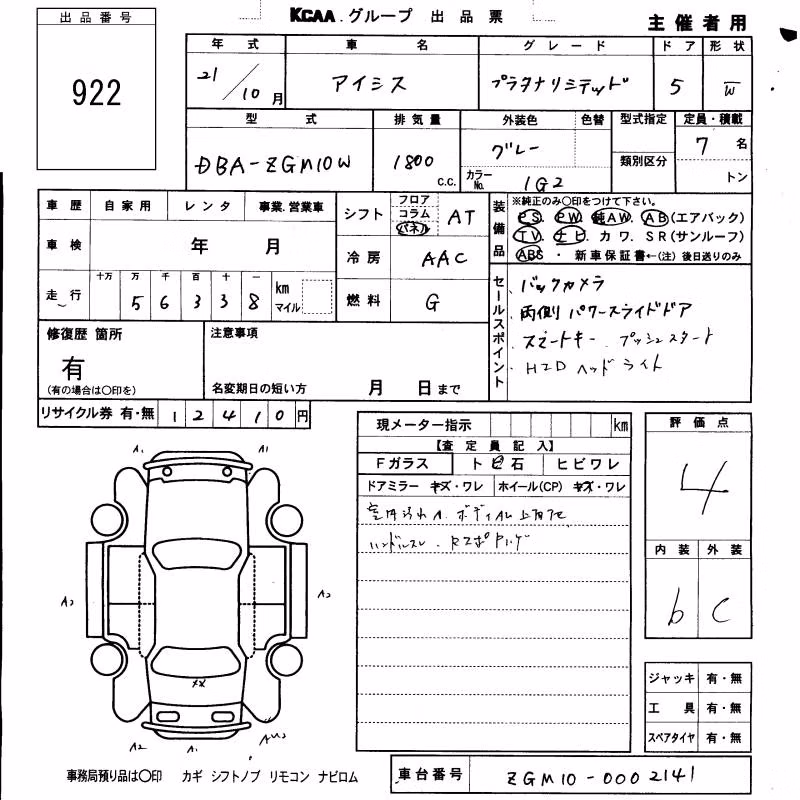 出品番号
922
KCAA.グループ 出品票
主催者用
年式 車名 グレード ドア 形状
21/10月 アイシス プラタナリミテッド 5 W
型式 排気量 外装色 色替 型式指定 定員・積載
DBA-ZGM10W 1800 c.c. グレー カラーNo. 1G2 類別区分 7名 トン
車歴 自家用 レンタ 事業.営業車
車検 年 月
走行 十万 万 千 百 十 一 km マイル
5 6 3 3 8
シフト フロア コラム パネル AT
冷房 AAC
燃料 G
装備品 ※純正のみ○印をつけて下さい。
PS. PW. 純AW. AB(エアバック)
TV. ナビ. カワ. SR(サンルーフ)
ABS ・ 新車保証書←(注) 後日送りのみ
セールスポイント
バックカメラ
両側パワースライドドア
スマートキー. プッシュスタート
HID ヘッドライト
修復歴 箇所
有
(有の場合は○印を)
注意事項
名変期日の短い方 月 日まで
リサイクル券 有・無 12410円
現メーター指示 km
【査定員記入】
Fガラス トビ石 ヒビワレ
ドアミラー キズ・ワレ ホイール(CP) キズ・ワレ
ハンドルスレ.
評価点
4
内装 外装
b C
ジャッキ 有・無
工具 有・無
スペアタイヤ 有・無
A1 A1
A2 A2
XX
A2 A1
事務局預り品は○印 カギ シフトノブ リモコン ナビロム
車台番号 ZGM10-0002141